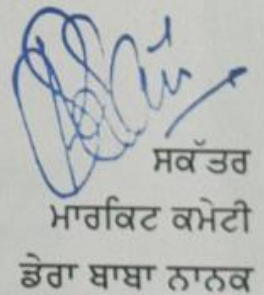 ਸਕੱਤਰ
ਮਾਰਕਿਟ ਕਮੇਟੀ
ਡੇਰਾ ਬਾਬਾ ਨਾਨਕ